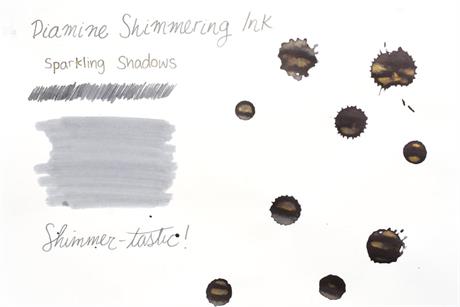 Diamine Shimmering Ink
Sparkling Shadows
Shimmer-tastic!